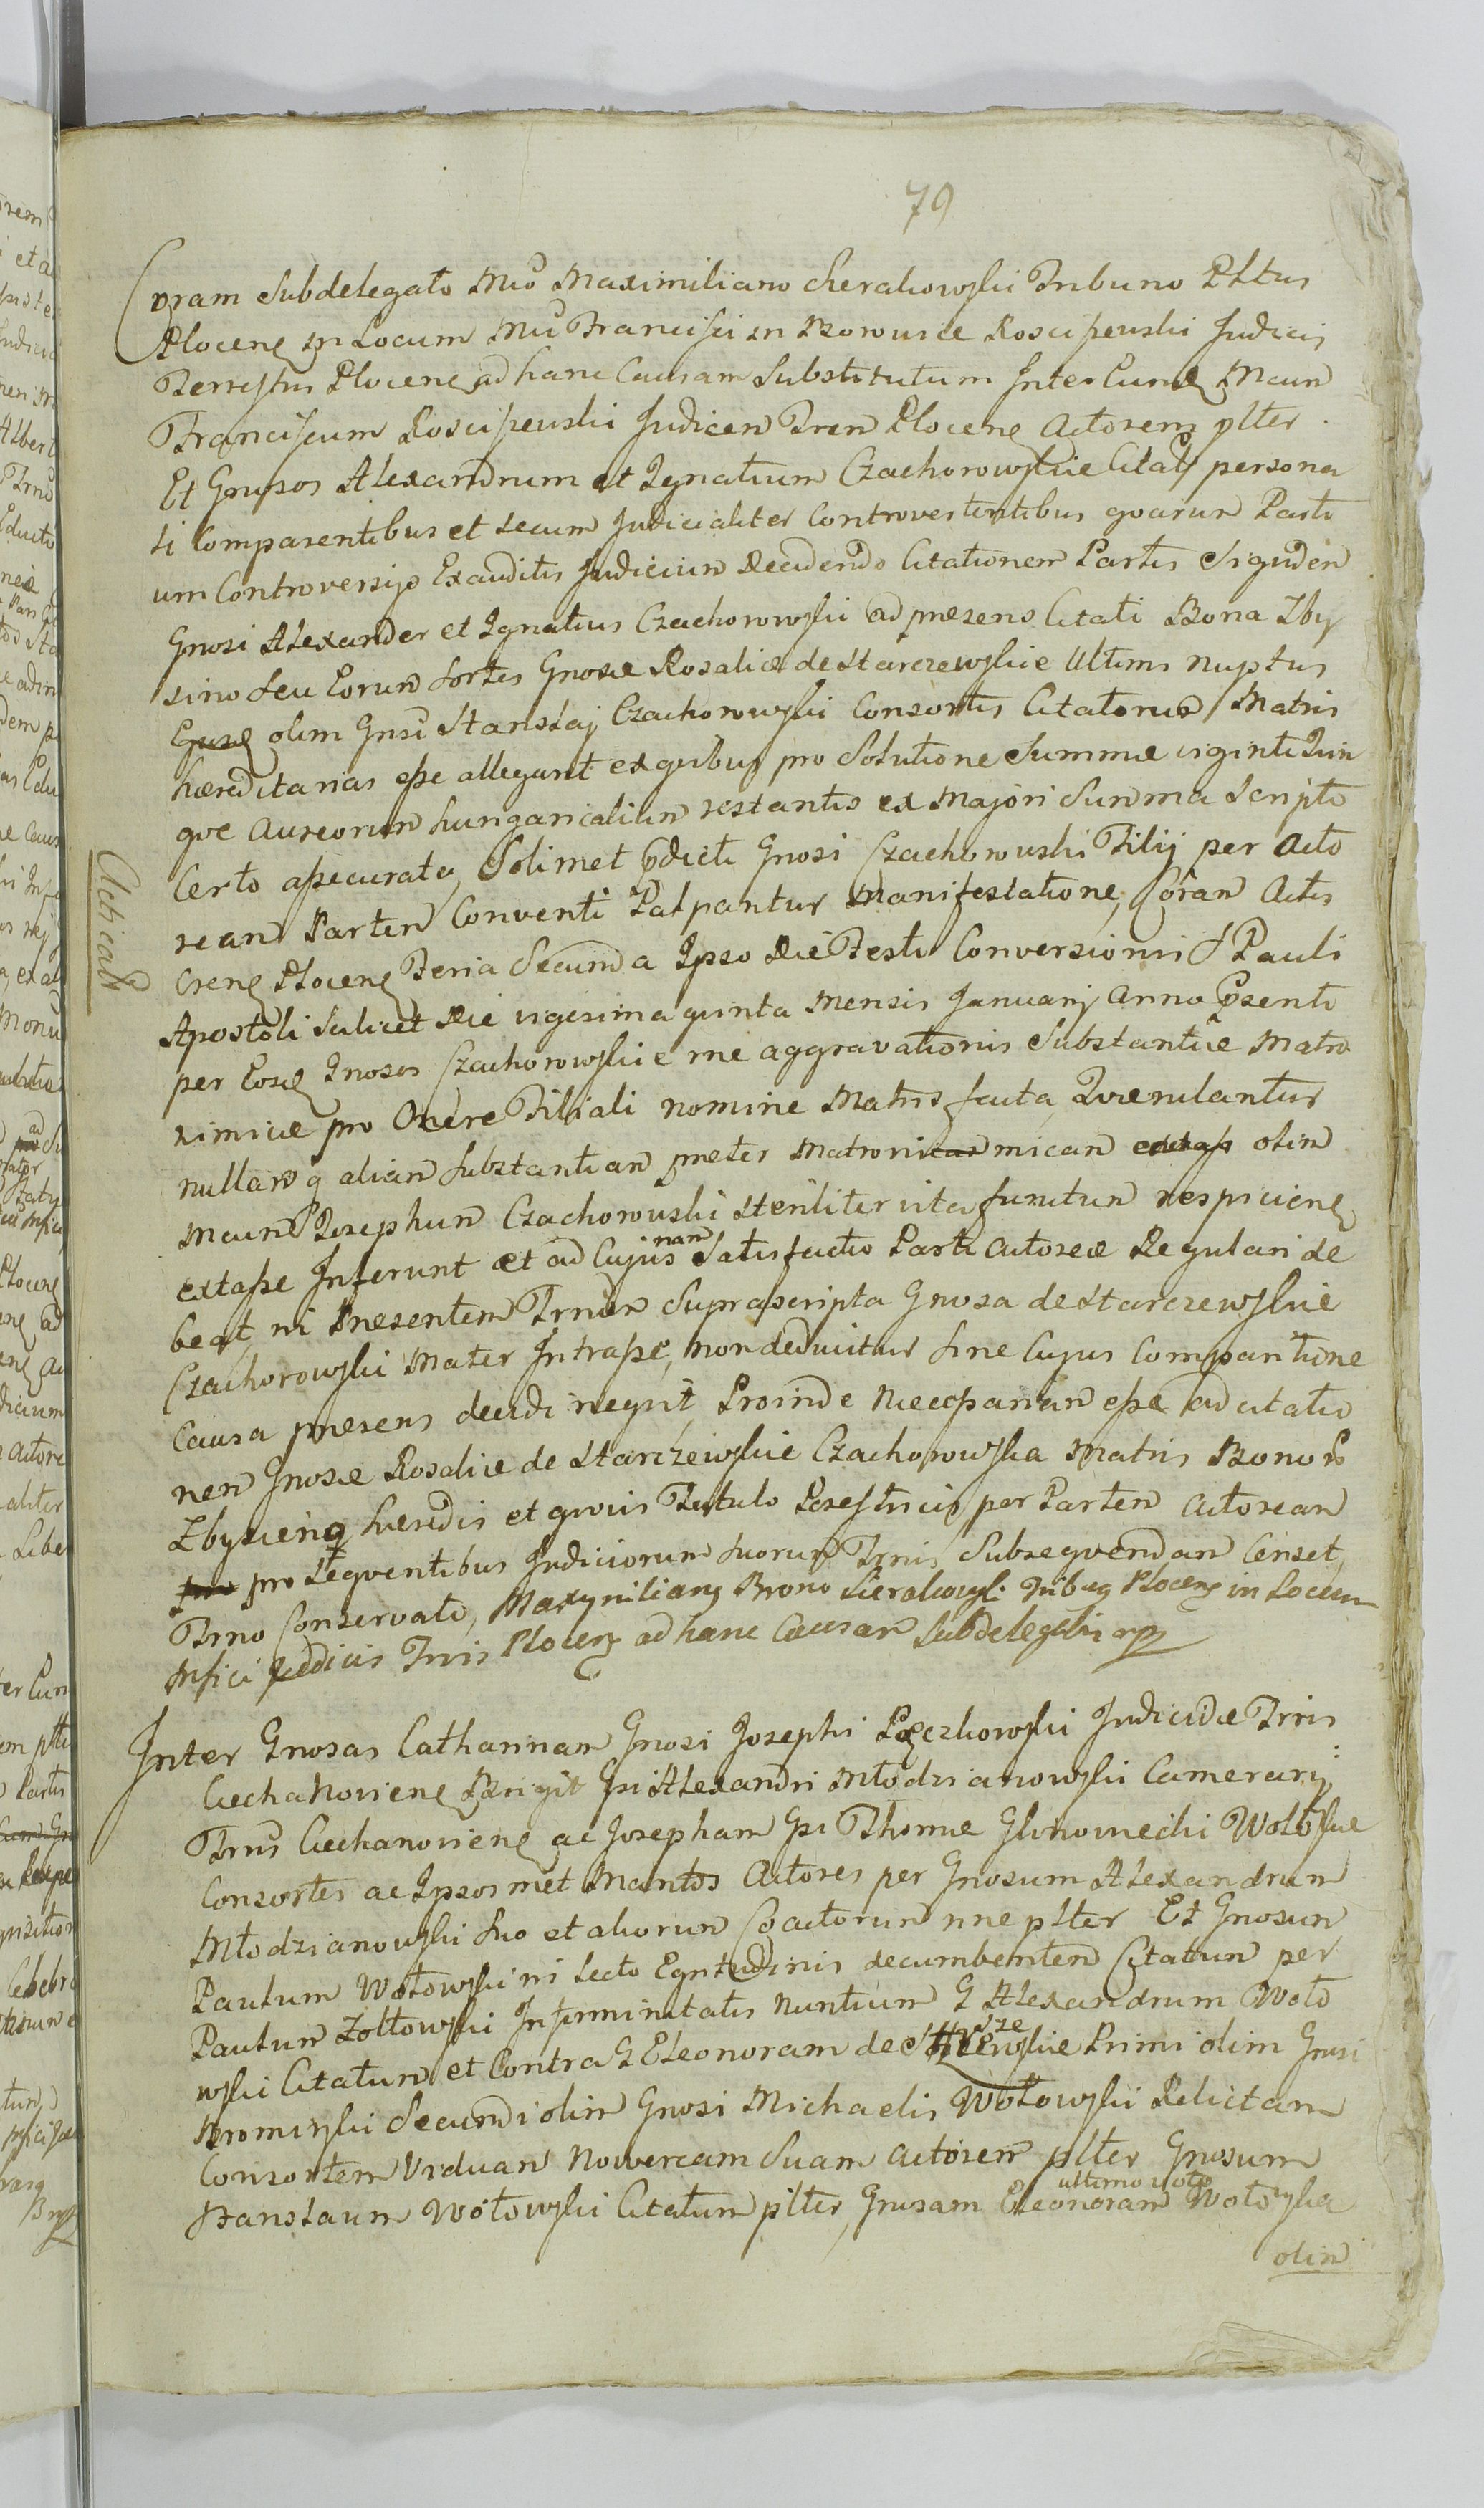 79
Coram Subdelegato Mco Maximiliano Sierakowski Tribuno Plttus
Plocens in Locum Mci Francisci in Borowice Kosciszewski Judicis
Terrestris Plocens ad hanc Causam Substitutum Inter Eund Mcum
Franciscum Kosciszewski Judicem Trem Plocens Actorem plter
Et Gnosos Alexandrum et Ignatium Czachorowskie Citatos persona
li Comparentibus et secum Judicialiter Controvertentibus qvarum Parti
um Controversijs Exauditis Judicium Decidendo Citationem Partis Siqvidem
Gnosi Alexander et Ignatius Czachorowski ad presens Citati Bona Zby
sino seu Eorum Sortes Gnosæ Rosaliæ de Starczewskie Ultims nuptus
olim Gnsi Stanislaj Czachorowski Consortis Citatorum Matris
hæreditarias esse allegant ex qvibus pro Solutione Summæ viginti Qvin
qve Aureorum hungaricalium restantis ex Majori Summa Scripto
Certo assecurata, Solimet pdicti Gnosi Czachorowski Filij per Acto
ream Partem Conventi Palpantur Manifestatione, Coram Actis
Crens Plocens Feria Secunda Ipso Die Festi Conversionis S Pauli
Apostoli Scilicet Die vigesima qvinta Mensis Januarij Anno psenti
per Eosd Gnosos Czachorowskie rne aggravationis Substantiæ Matri
rimiciæ pro Onere Filiali nomine Matris facta, Qværulantur
nullamq aliam Substantiam præter Matrimicam olim
Mcum Josephum Czachorowski Steriliter vita functum respiciens
extasse Inferunt et ad Cujus nam Satisfactio Parti Actoreæ Regulari de
beat, ni Presentem Trnum Suprascripta Gnosa de Starczewskie
Czachorowski Mater Intrasse, non deducitur sine Cujus Comparitione
Causa presens decidi neqvit, Proinde Necessariam esse adcitatio
nem Gnosæ Rosaliæ de Starczewskie Czachorowska Matris Bonor
Zbysiens hæredis et qvovis Titulo Possestricis per Partem Actoream
pro Seqventibus Judiciorum suorum Trnis Subseqvendam Censet,
Trno Conservato, Maxymilians Brono Sierakowski Tribus Plocens in Locum
Mfici Judicis Trris Plocens ad hanc Causam Subdelegatus mp
Acticatt
Inter Gnosas Catharinam Gnosi Josephi Pęczkowski Judicidæ Trris
Ciechanoviens Brigit Gsi Alexandri Młodzianowski Camerarij
Trris Ciechanoviens ac Josepham Gsi Thomæ Glinowiecki Wołoskie
Consortes ac Ipsosmet Maritos Actores per Gnosum Alexandrum
Młodzianowski suo et aliorum Coactorum nne plter Et Gnosum
Paulum Wołowski ni lecto Egritudinis decumbentem Citatum per
Paulum Zołtowski Infirmitatis Nuntium G Alexandrum Woło
wski Citatum et Contra G Eleonoram de Primi olim Gnosi
Bromirski Secundi olim Gnosi Michaelis Wołowski Relictam
Consortem Viduam Novercam Suam Actorem plter Gnosum
Stanislaum Wołowski Citatum plter, Gnosam Eleonoram ultimo voto Wołowska
olim